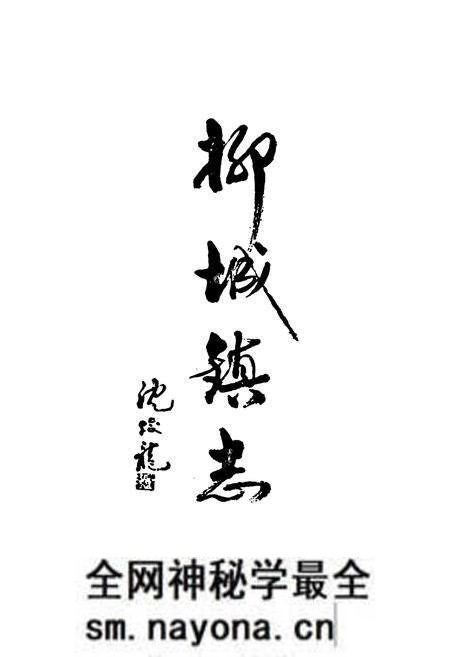 柳城鎮志
沈 龍
全网神秘学最全
sm.nayona.cn